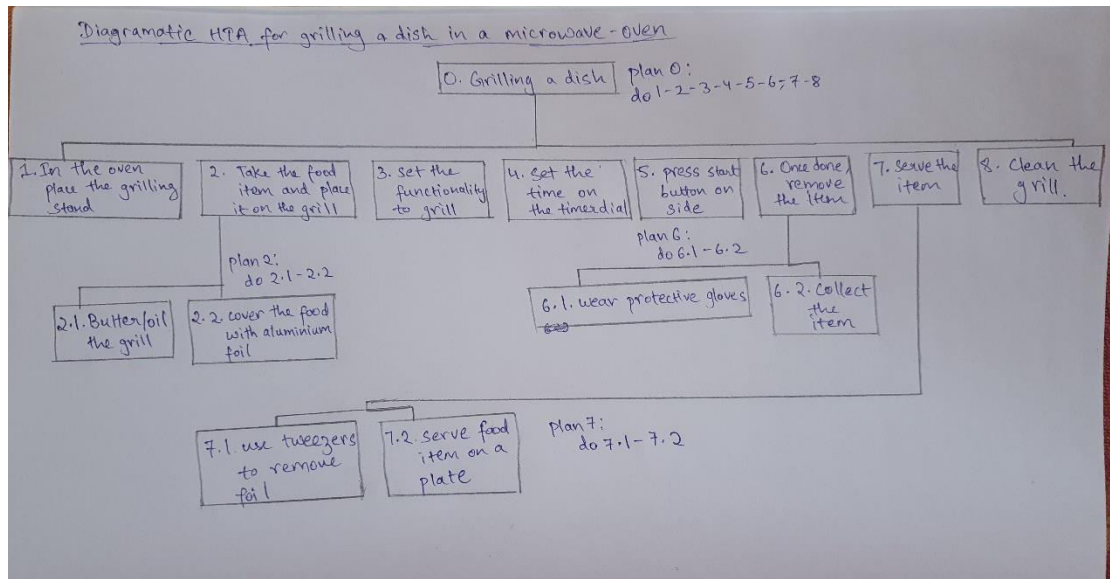 Diagramatic HTA for grilling a dish in a microwave-oven
0. Grilling a dish
plan 0:
do 1-2-3-4-5-6-7-8
1. In the oven
place the grilling
stand
2. Take the food
item and place
it on the grill
3. set the
functionality
to grill
4. set the
time on
the timerdial
5. press start
button on
side
6. Once done,
remove
the item
7. serve the
item
8. Clean the
grill.
plan 2:
do 2.1-2.2
plan 6:
do 6.1-6.2
2.1. Butter/oil
the grill
2.2. cover the food
with aluminium
foil
6.1. wear protective gloves
6.2. collect
the
item
7.1. use tweezers
to remove
foil
7.2. serve food
item on a
plate
plan 7:
do 7.1-7.2